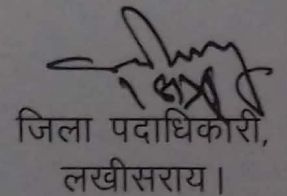 जिला पदाधिकारी,
लखीसराय।